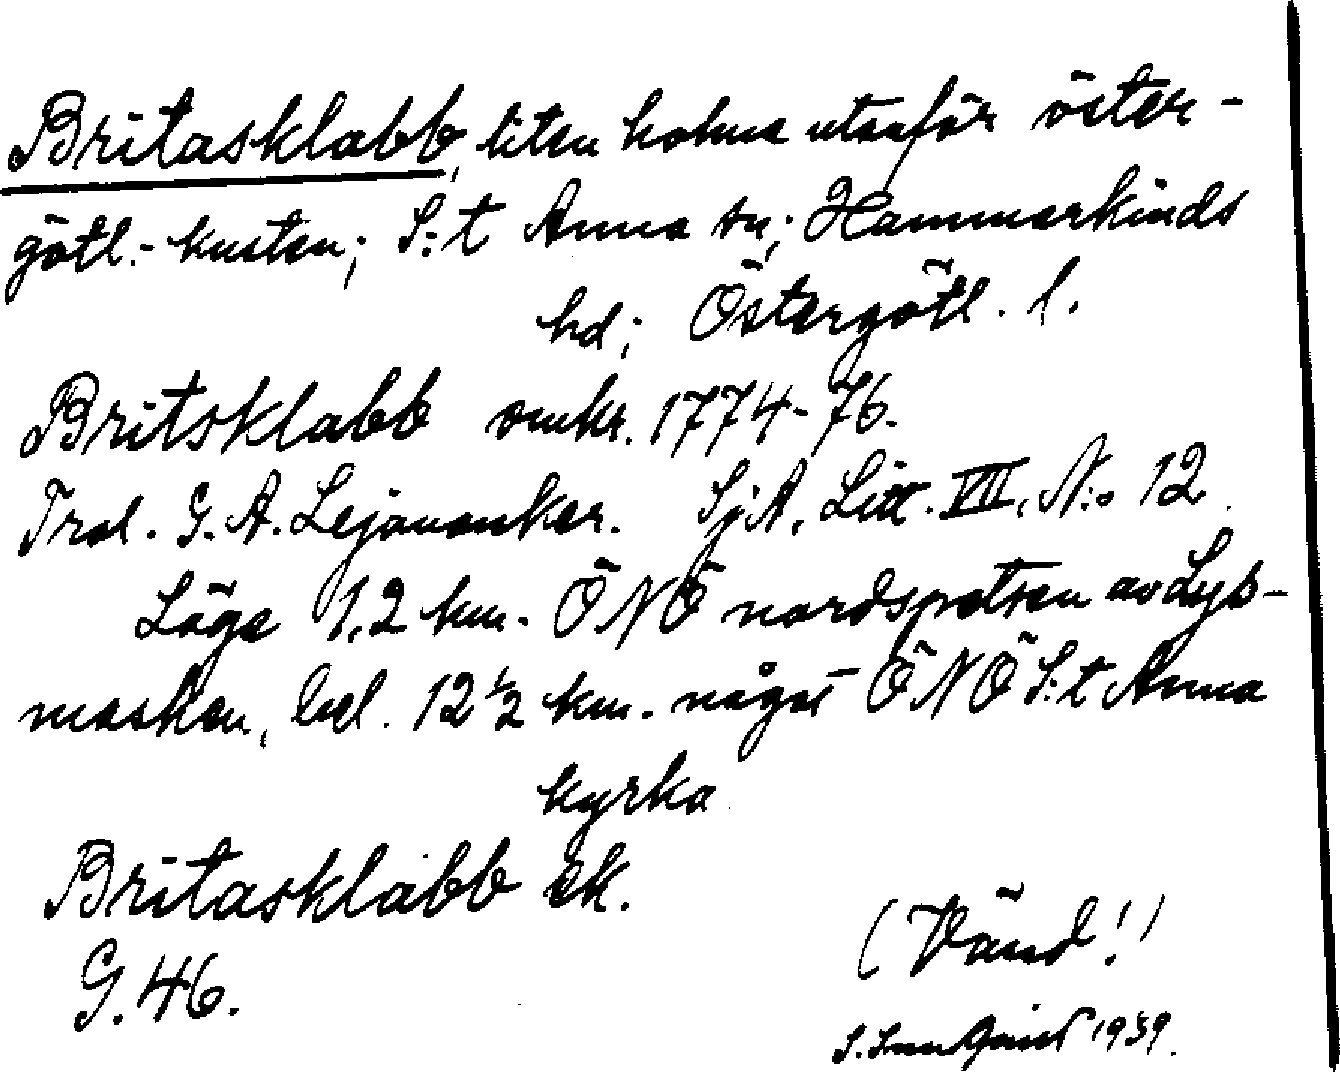 Britasklabb, liten holme utanför öster-
götl.- kusten; S:t Anna sn; Hammarkinds
hd; Östergötl. l.
Britsklabb omkr. 1774-76.
Trol. G. A. Lejonanker. SjA, Litt. VII, N:o 12.
Läge 1,2 km. ÖNÖ nordspetsen av Lys-
masken, bel. 12 1/2 km. något ÖNÖ S:t Anna
kyrka
Britasklabb ek.
G. 46.
(Vänd!)
1939.